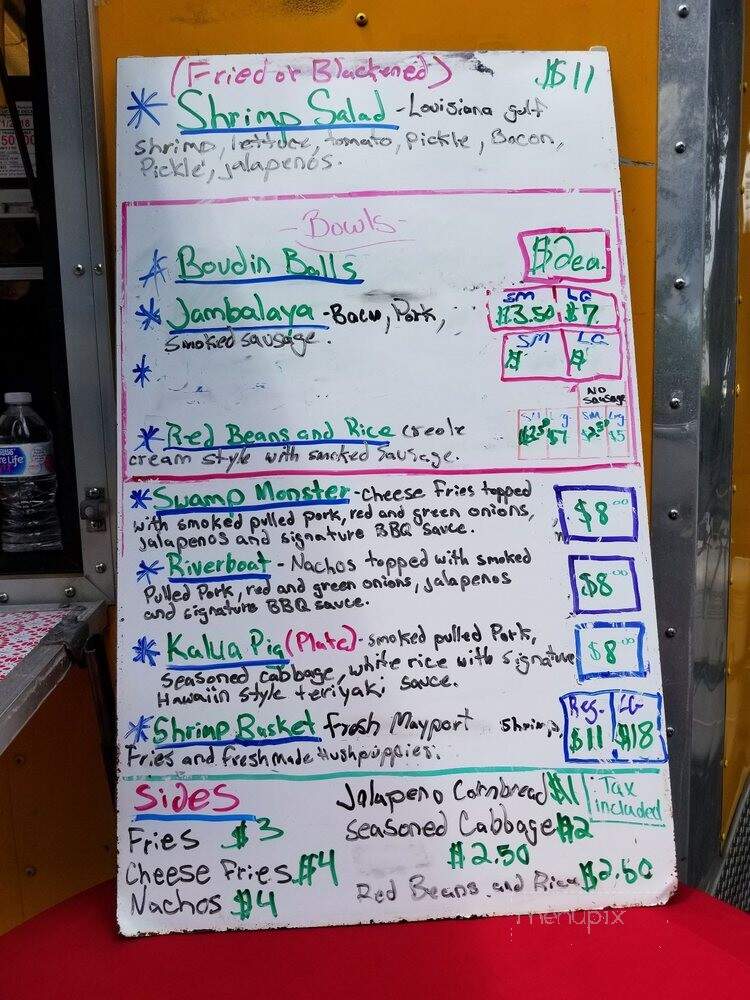 (Fried or Blackened) $11
* Shrimp Salad - Louisiana gulf
shrimp, lettuce, tomato, pickle, Bacon,
Pickle, jalapenos.
- Bowls -
* Boudin Balls $2ea.
SM LG
* Jambalaya - Bacn, Pork, $3.50 $7
smoked sausage.
SM LG
* $ $
NO
Sausage
SM Lg
* Red Beans and Rice creole $7 $5
cream style with smoked Sausage.
* Swamp Monster - Cheese Fries topped
with smoked pulled pork, red and green onions, $8.00
jalapenos and signature BBQ sauce.
* Riverboat - Nachos topped with smoked
Pulled Pork, red and green onions, jalapenos $8.00
and signature BBQ sauce.
* Kalua Pig (Plate) - smoked pulled Pork, $8.00
seasoned cabbage, white rice with signature
Hawaiin style teriyaki sauce.
Reg. LG
* Shrimp Basket Fresh Mayport shrimp, $11 $18
Fries and freshmade Hushpuppies.
Sides
Jalapeno Cornbread $1
Tax
included
Fries $3
Seasoned Cabbage $2
$2.50
Cheese Fries $4
Red Beans and Rice $2.50
Nachos $4
menupix